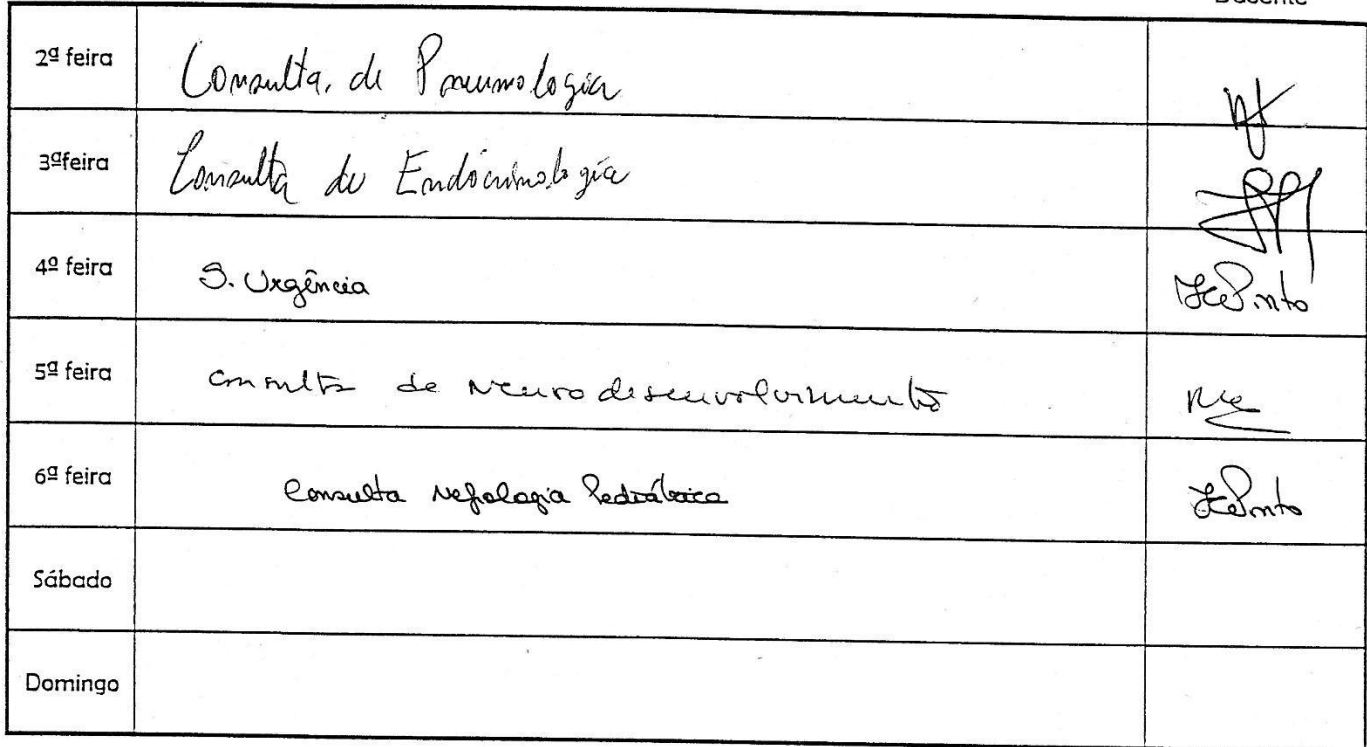 Docente
2ª feira Consulta de Pneumologia
3ªfeira Consulta de Endocrinologia
4ª feira S. Urgência
5ª feira consulta de Neurodesenvolvimento
6ª feira Consulta Nefrologia Pediátrica
Sábado
Domingo